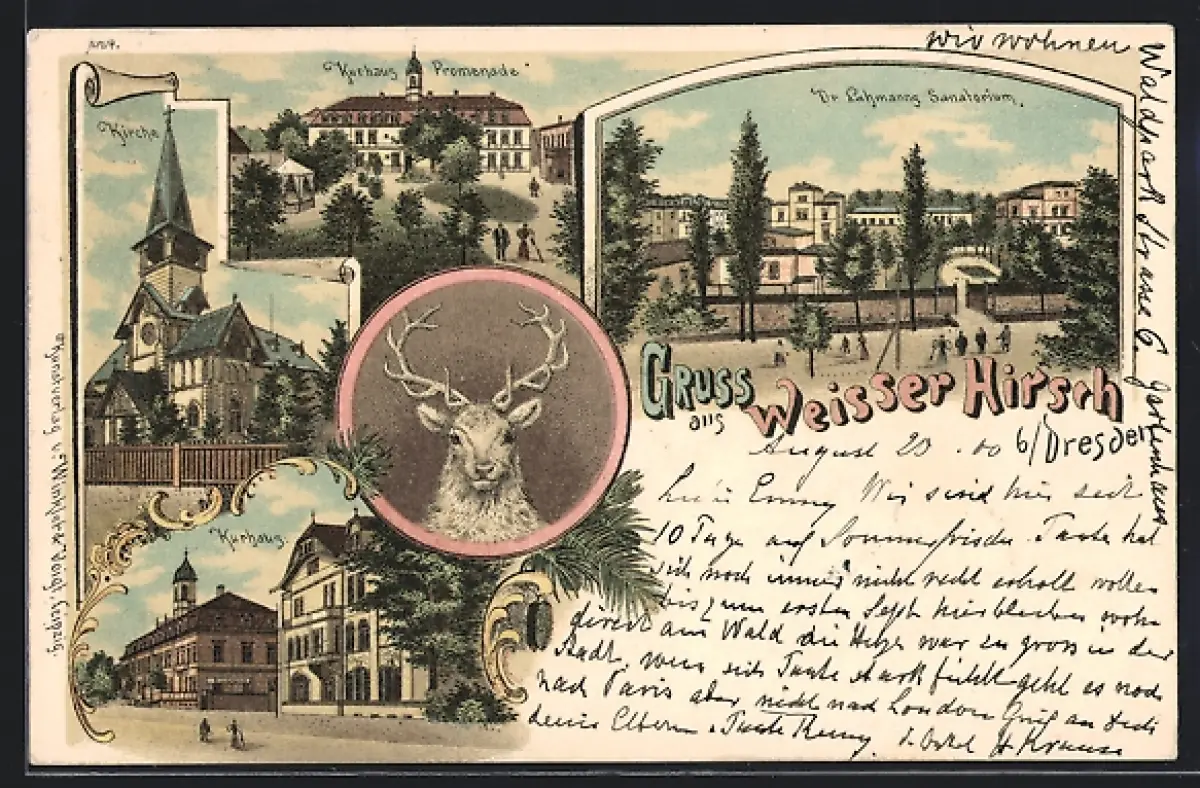 wir wohnen
Waldpark Strasse 6. Gartenhaus
Kurhaus Promenade
Dr Lahmanns Sanatorium.
Kirche
Gruss
aus
Weisser Hirsch
b/Dresden
August 23. 00
Wir sind hier seit
10 Tage auf Sommerfrische. Tante hat
sich noch immer nicht recht erholt wollen
bis zum ersten Sept hierbleiben
direct am Wald die Hize war zu gross in der
Stadt, wenn sich Tante stark fühlt geht es noch
nach Paris aber nicht nach London Gruß an Dich
deine Eltern Tante
H Krause
Kurhaus.
Kunstverlag v. Winkler &
Leipzig.